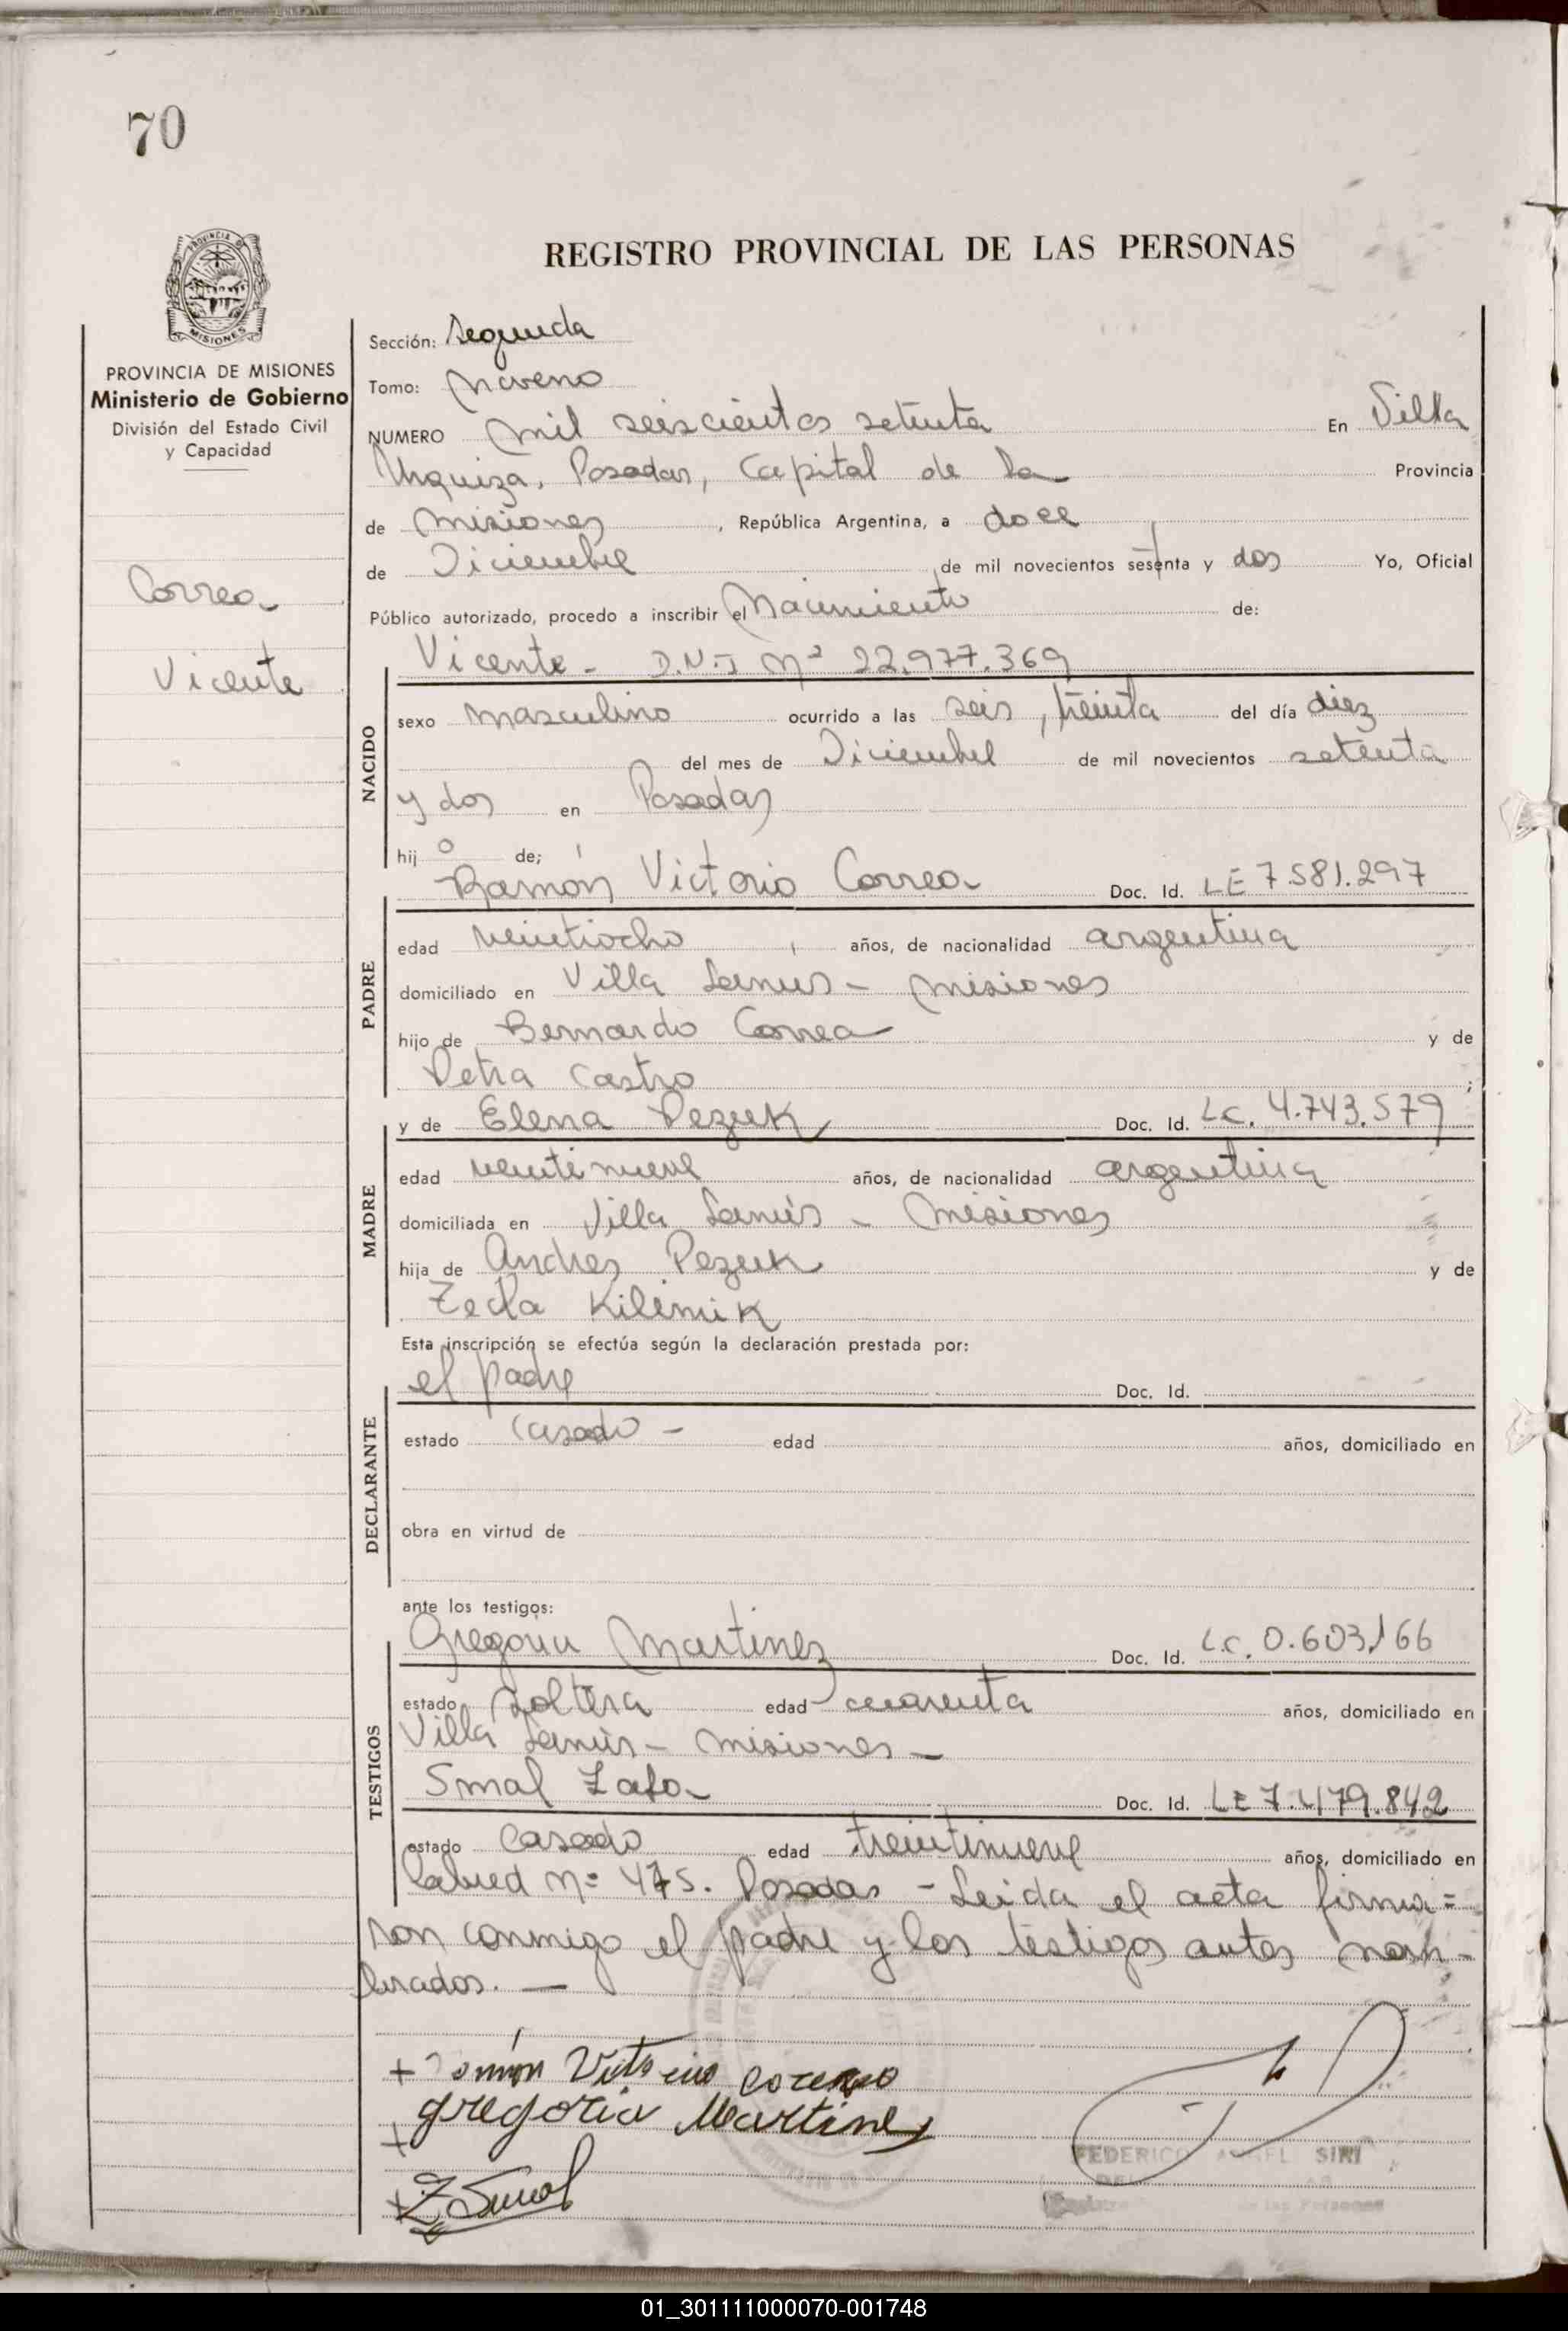 70
PROVINCIA DE
MISIONES
PROVINCIA DE MISIONES
Ministerio de Gobierno
División del Estado Civil
y Capacidad
Correa
Vicente
REGISTRO PROVINCIAL DE LAS PERSONAS
Sección: Segunda
Tomo: Noveno
NUMERO Mil seiscientos setenta En Villa
Urquiza, Posadas, Capital de la Provincia
de Misiones, República Argentina, a doce
de Diciembre de mil novecientos setenta y dos Yo, Oficial
Público autorizado, procedo a inscribir el Nacimiento de:
Vicente - D.N.I Nº 22.977.369
NACIDO
sexo masculino ocurrido a las seis, treinta del día diez
del mes de Diciembre de mil novecientos setenta
y dos en Posadas
hijo de;
Ramón Victorio Correa Doc. Id. LE 7.581.297
PADRE
edad veintiocho años, de nacionalidad argentina
domiciliado en Villa Lanus - Misiones
hijo de Bernardo Correa y de
Petra Castro;
y de Elena Pezuk Doc. Id. L.C. 4.743.579
MADRE
edad veintinueve años, de nacionalidad argentina
domiciliada en Villa Lanús - Misiones
hija de Andres Pezuk y de
Tecla Kilimik
Esta inscripción se efectúa según la declaración prestada por:
el padre Doc. Id.
DECLARANTE
estado casado - edad años, domiciliado en
obra en virtud de
ante los testigos:
Gregoria Martinez Doc. Id. L.C. 0.603.166
TESTIGOS
estado soltera edad cuarenta años, domiciliado en
Villa Lanús - Misiones -
Smal Doc. Id. LE 7.479.842
estado casado edad treintinueve años, domiciliado en
Nº 475. Posadas - Leida el acta firma=
ron conmigo el padre y los testigos antes nom-
brados. —
+ Ramón Victorio Correa
+ gregoria Martinez
+ Z Smal
FEDERICO ANGEL SIRI
de las Personas
01_301111000070-001748